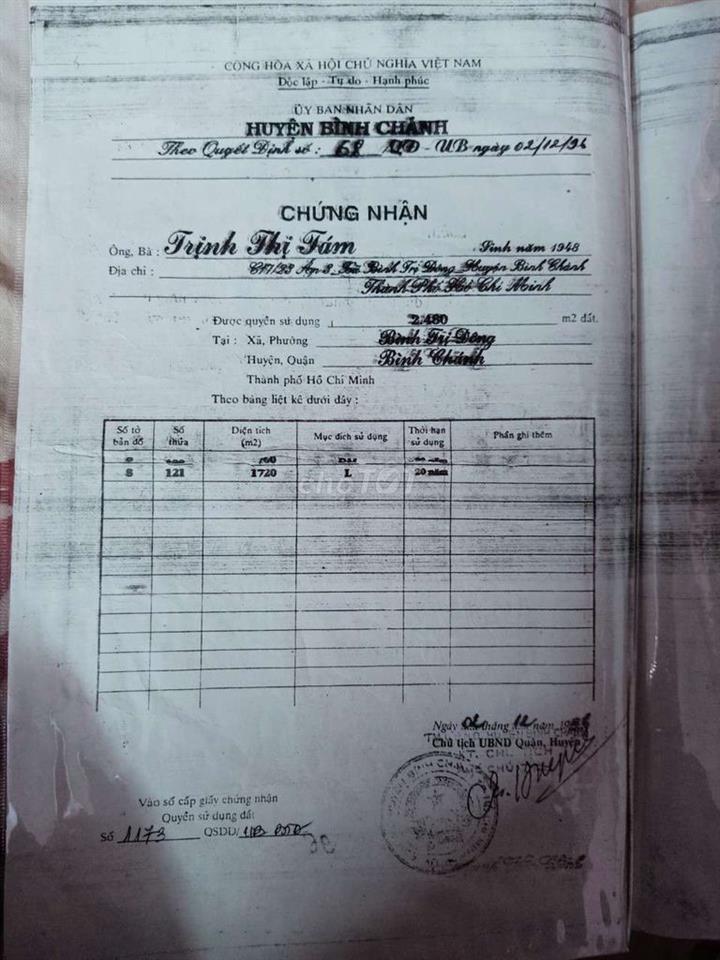 CỘNG HÒA XÃ HỘI CHỦ NGHĨA VIỆT NAM
Độc lập - Tự do - Hạnh phúc
ỦY BAN NHÂN DÂN
HUYỆN BÌNH CHÁNH
Theo Quyết Định số : 68 QĐ - UB ngày 02/12/96
CHỨNG NHẬN
Ông, Bà : Trịnh Thị Tám Sinh năm 1948
Địa chỉ : Ấp 3 Xã Bình Trị Đông Huyện Bình Chánh
Thành Phố Hồ Chí Minh
Được quyền sử dụng 2.480 m2 đất.
Tại : Xã, Phường Bình Trị Đông
Huyện, Quận Bình Chánh
Thành phố Hồ Chí Minh
Theo bảng liệt kê dưới đây :
Số tờ bản đồ Số thửa Diện tích (m2) Mục đích sử dụng Thời hạn sử dụng Phần ghi thêm
8 121 1720 L 20 năm
chợTỐT
Ngày 02 tháng 12 năm 1996
Chủ tịch UBND Quận, Huyện
KT. CHỦ TỊCH
Vào sổ cấp giấy chứng nhận
Quyền sử dụng đất
Số 1173 QSDĐ/